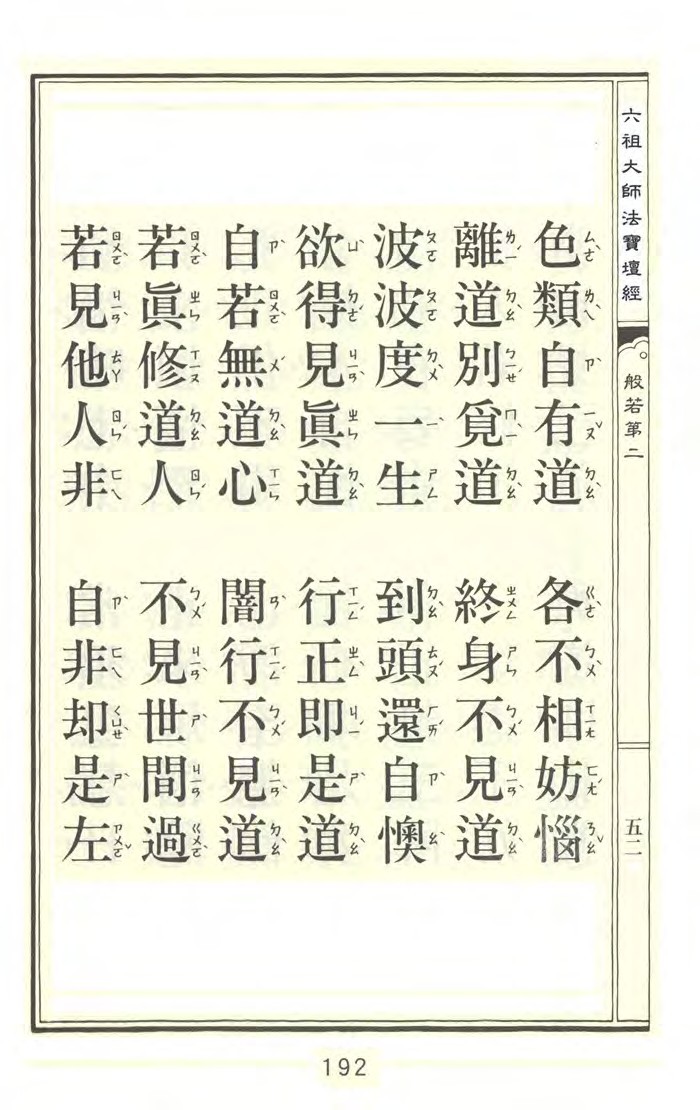 六祖大師法寶壇經
般若第二
五二
色類自有道 各不相妨惱
離道別覓道 終身不見道
波波度一生 到頭還自懊
欲得見眞道 行正即是道
自若無道心 闇行不見道
若眞修道人 不見世間過
若見他人非 自非却是左
192